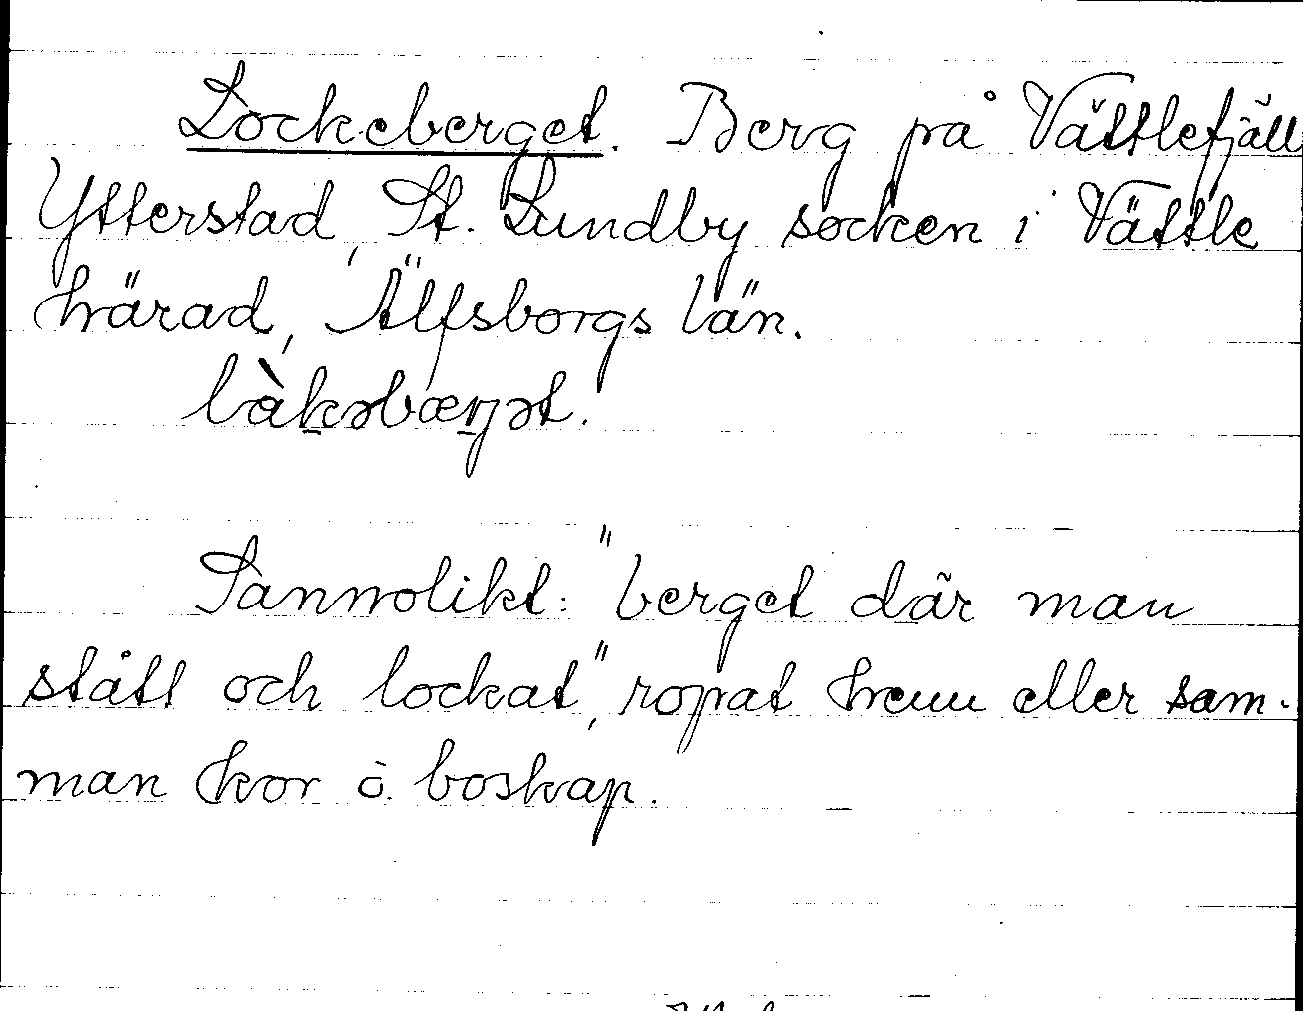 Lockeberget. Berg på Vättlefjäll
Ytterstad, St. Lundby socken i Vättle
härad, Älfsborgs län.
làkəbærjət.
Sannolikt: "berget där man
stått och lockat", ropat hem eller sam-
man kor o. boskap.